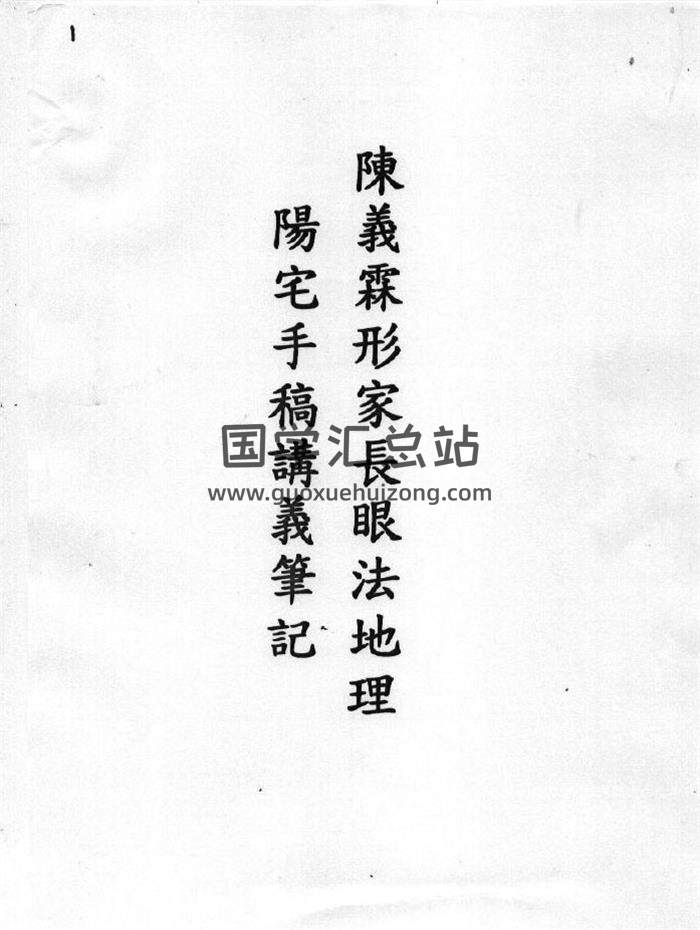 1
陳義霖形家長眼法地理
陽宅手稿講義筆記
国学汇总站
www.guoxuehuizong.com